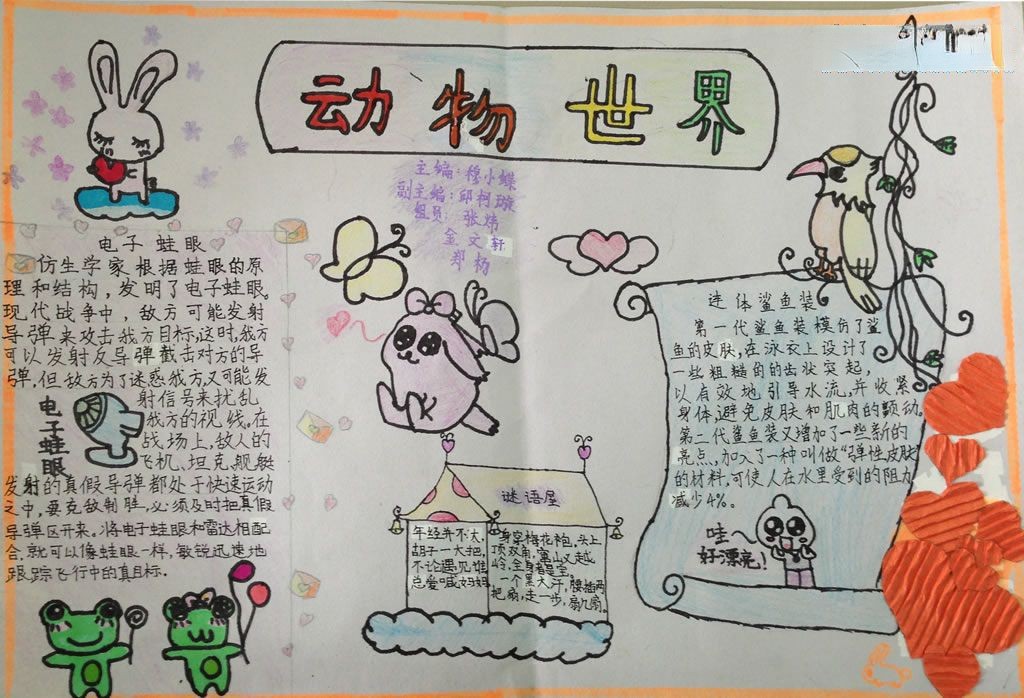 动物世界
主编:穆小蝶
副主编:邱柯璇
组员:张炜
金文轩
郑杨
电子蛙眼
仿生学家根据蛙眼的原
理和结构,发明了电子蛙眼。
现代战争中,敌方可能发射
导弹来攻击我方目标,这时,我方
可以发射反导弹截击对方的导
弹,但敌方为了迷惑我方,又可能发
射信号来扰乱
我方的视线。在
战场上,敌人的
飞机、坦克、舰艇
发射的真假导弹都处于快速运动
之中,要克敌制胜,必须及时把真假
导弹区开来。将电子蛙眼和雷达相配
合,就可以像蛙眼一样,敏锐迅速地
跟踪飞行中的真目标。
电子蛙眼
谜语屋
年经并不大,
胡子一大把,
不论遇见谁,
总爱喊妈妈
身穿梅花袍,头上
顶双角,窜山又越
岭,全身都是宝。
一个黑大汗,腰插两
把扇,走一步,扇几扇。
连体鲨鱼装
第一代鲨鱼装模仿了鲨
鱼的皮肤,在泳衣上设计了
一些粗糙的齿状突起,
以有效地引导水流,并收紧
身体,避免皮肤和肌肉的颤动。
第二代鲨鱼装又增加了一些新的
亮点,加入了一种叫做“弹性皮肤”
的材料,可使人在水里受到的阻力
减少4%。
哇~
好漂亮!